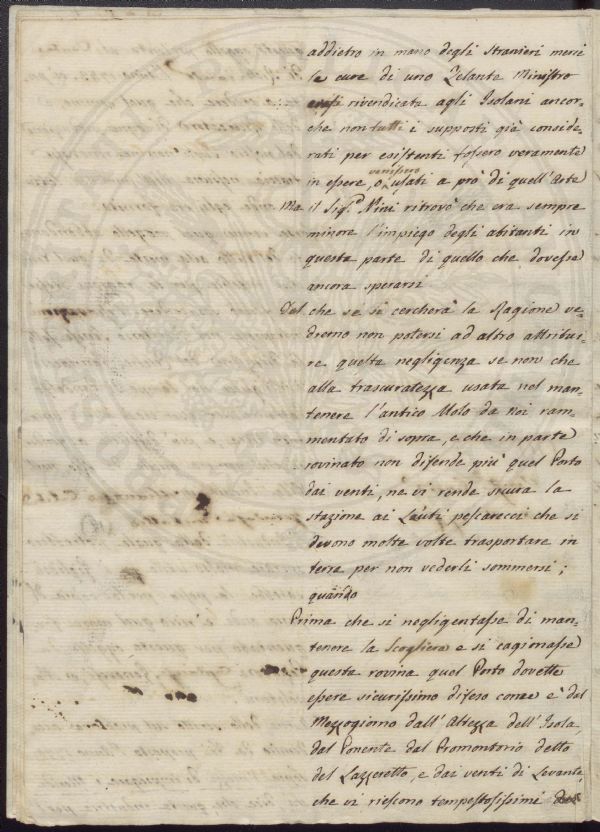 addietro in mano degli Stranieri mercè
le cure di uno Zelante Ministro
rivendicate agli Isolani ancor-
che non tutti i supposti già conside-
rati per esistenti fossero veramente
in essere, o venissero usati a prò di quell'Arte
Ma il Sig.r Nini ritrovò che era sempre
minore l'impiego degli abitanti in
questa parte di quello che dovesse
ancora sperarsi
Del che se si cercherà la Ragione ve-
dremo non potersi ad altro attribui-
re questa negligenza se non che
alla trascuratezza usata nel man-
tenere l'antico Molo da noi ram-
mentato di sopra, e che in parte
rovinato non difende più quel Porto
dai venti, ne vi rende sicura la
stazione ai Leuti pescarecci che si
devono molte volte trasportare in
terre per non vederli sommersi;
quando
Prima che si negligentasse di man-
tenere la Scogliera e si cagionasse
questa rovina quel Porto dovette
essere sicurissimo difeso come è dal
Mezzogiorno dall'Altezza dell'Isola,
dal Ponente dal Promontorio detto
del Lazzeretto, e dai venti di Levante,
che vi riescono tempestosissimi